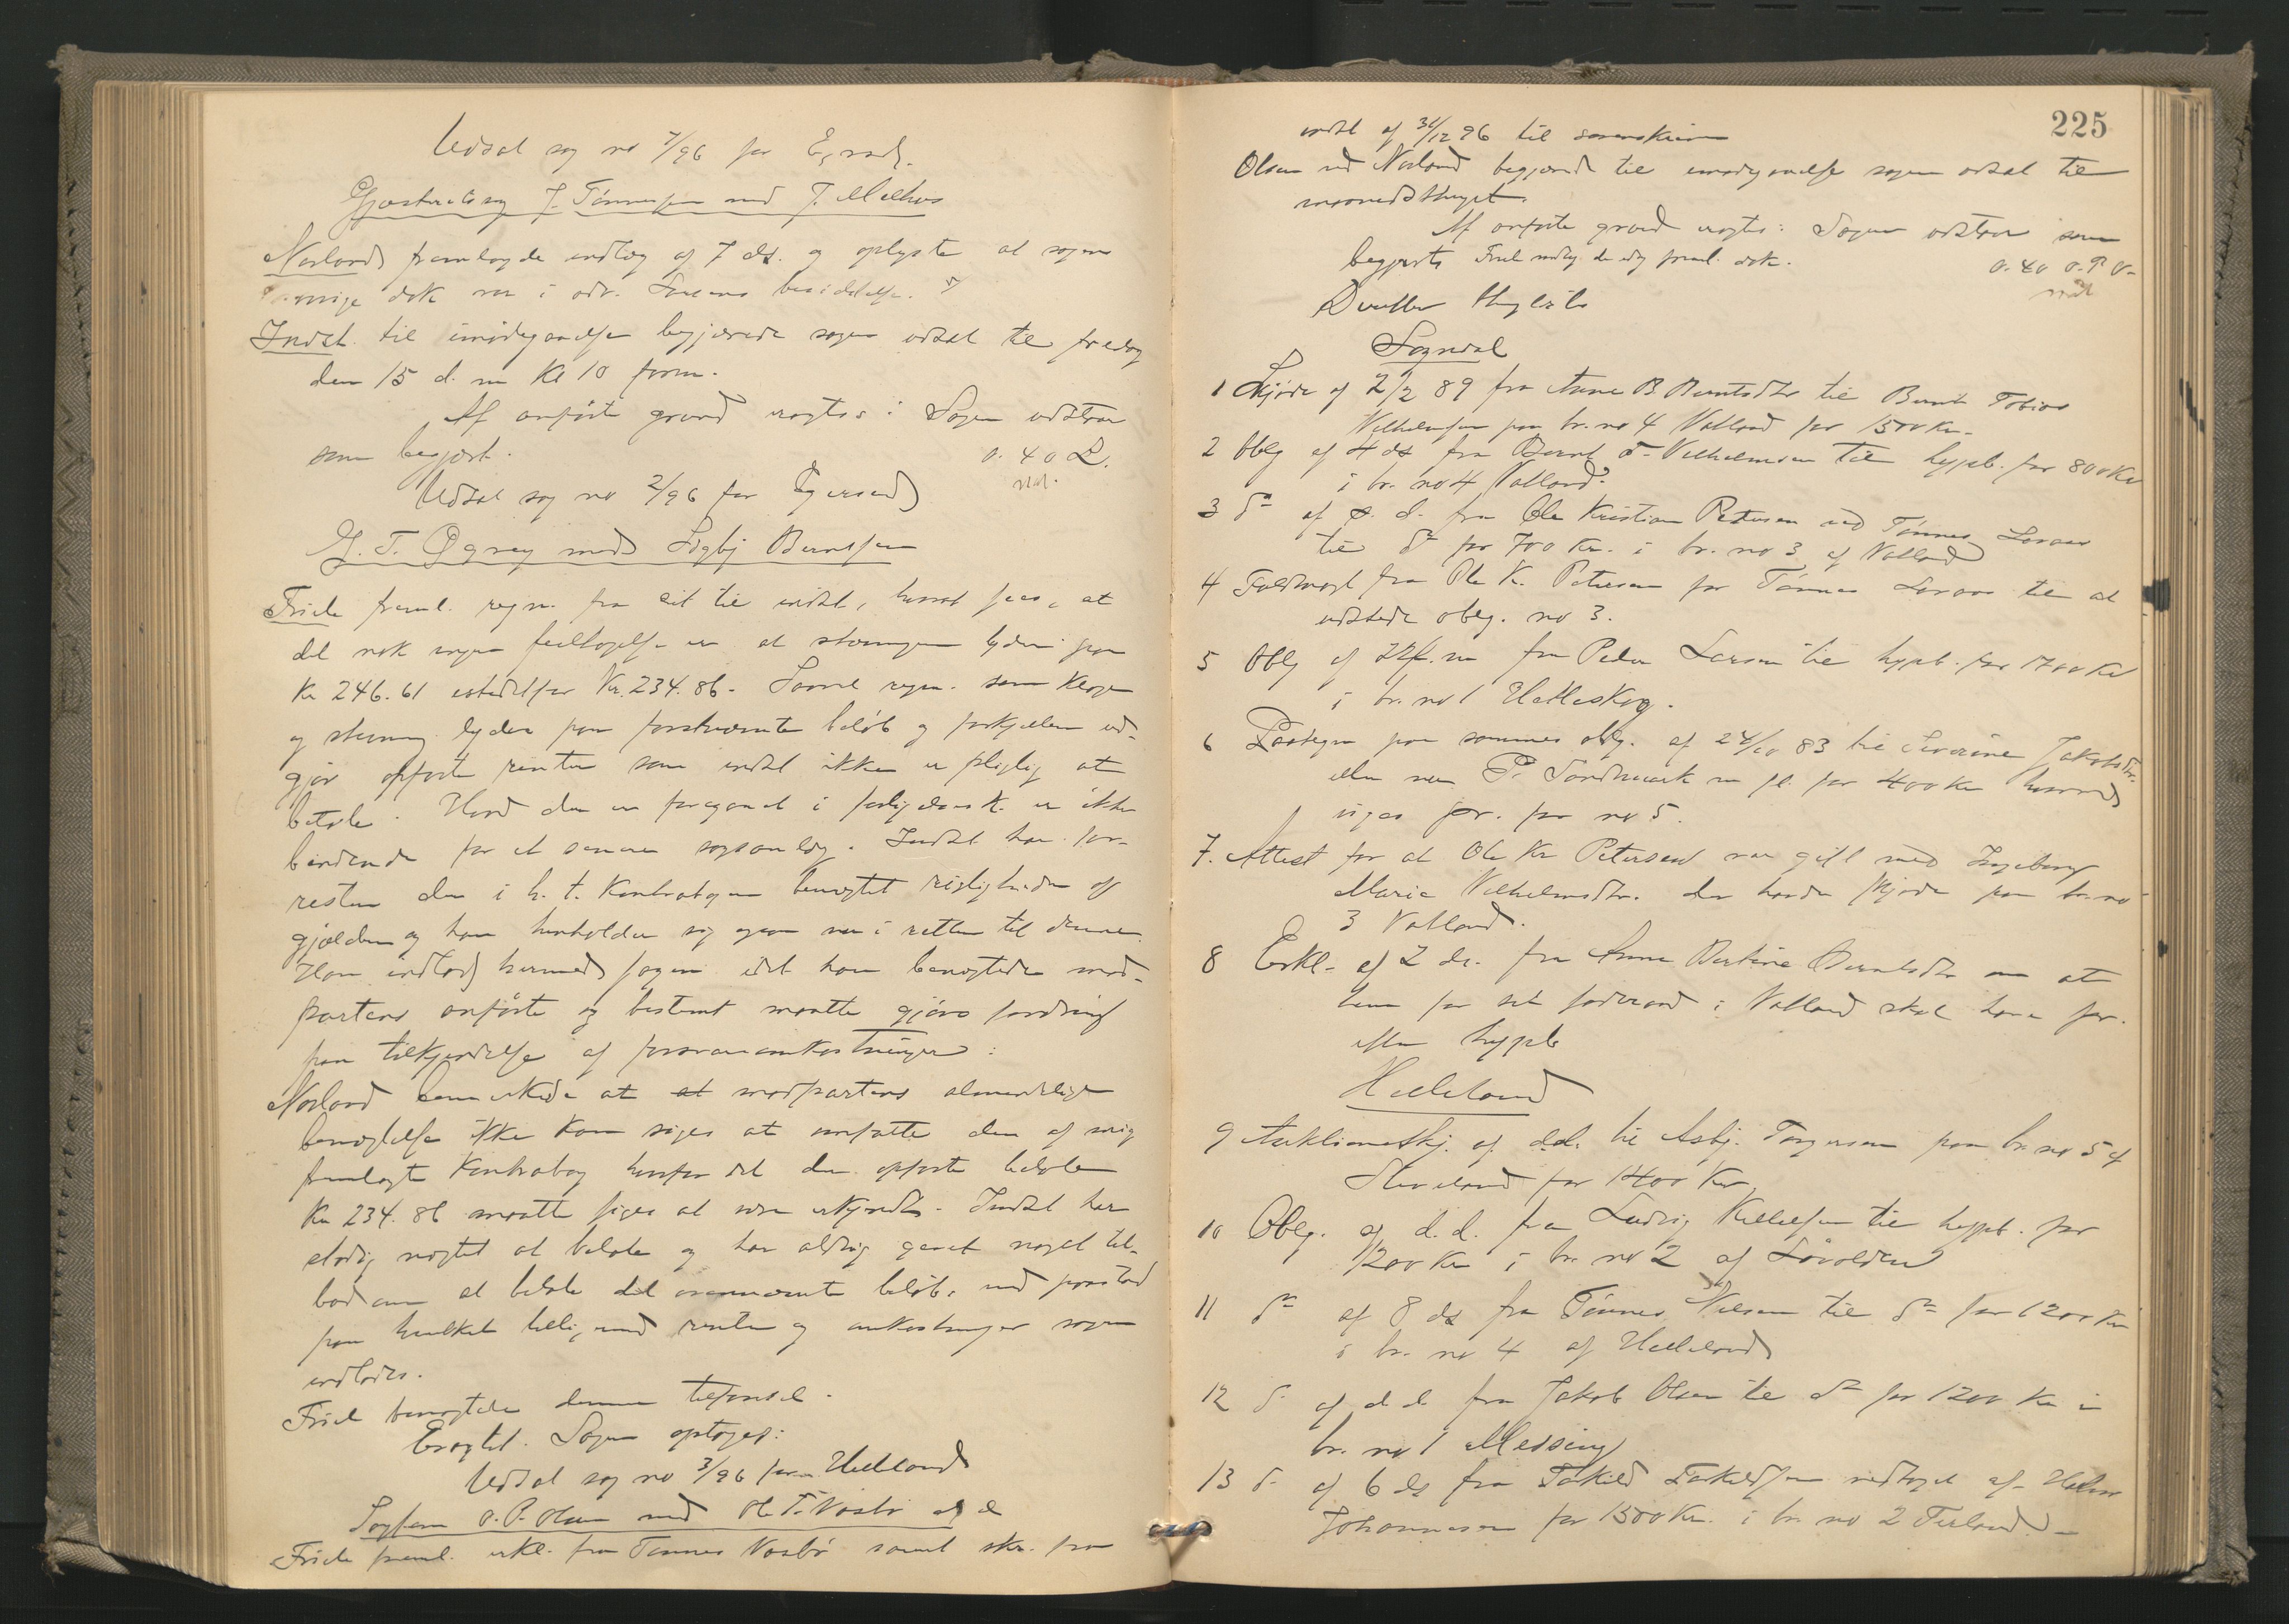 Udsat sag no 7/96 for Egersd.
Gjæsteretssag J. Tønnesen mod J. Melhus
Norland fremlagde indlæg af 7 ds. og oplyste at sagens
øvrige dok var i adv. besiddelse.
Indst. til imødegaaelse begjærede sagen udsat til fredag
den 15 d. m Kl 10 form.
Af anførte grund eragtes: Sagen udstaar
som begjært.
0. 40 Q.
Udsat sag no 2/96 for Egersund
G. T. Øgrey mod Sigbj Berntsen
Friele freml. regn. fra cit til indst, hvoraf sees, at
det nok ingen feiltagelse er at stævningen lyder paa
Kr 246.61 istedetfor Kr. 234.86. Saavel regn. som klage
og stevning lyder paa forstnævnte beløb og forskjellen ud-
gjør opførte renter som indst ikke er pligtig at
betale. Hvad der er foregaaet i forligelsesk. er ikke
bindende for et senere sagsanlæg. Indst har for-
resten der i h. t. Kontrabogen benægtet rigtigheden af
gjælden og han henholder sig ogsaa nu i retten til denne.
Han indlod hermed sagen idet han benægtede mod-
partens anførte og bestemt maatte gjøre fordring
paa tilkjendelse af forsvarsomkostninger:
Norland bemerkede at at modpartens almindelige
benægtelse ikke kan siges at omfatte den af mig
fremlagte Kontrabog hvorfor det der opførte beløb
Kr 234.86 maatte siges at være erkjendt. Indst har
stadig nægtet at betale og har aldrig gjort noget til-
bud om at betale det ovennævnte beløb, med paastand
paa hvilket tillige med renter og omkostninger sagen
indlodes.
Friele benægtede denne tilførsel.
Eragtet. Sagen optages:
Udsat sag no 3/96 for Helleland
Sagfører O. P. Olsen mod Ole T. Vasbø
Friele freml. erkl. fra Tønnes Vasbø samt skr. fra
225
indst af 31/12 96 til sorenskriver
Olsen ved Norland begjærede til imødegaaelse sagen udsat til
maanedsthinget.
Af anførte grund eragtes: Sagen udstaar som
begjært.
Derefter thinglæst
Sogndal
1 Skjøde af 2/2 89 fra Anne B Berntsdtr til Bernt Tobias
Vilhelmsen paa br. no 4 Vatland for 1500 Kr.
2 Oblg af 4 ds fra Bernt T. Vilhelmsen til hypb. for 800 Kr
i br. no 4 Vatland.
3 do af s. d. fra Ole Kristian Petersen ved Tønnes
til do for 700 Kr. i br. no 3 af Vatland
4 Fuldmagt fra Ole K. Petersen for Tønnes til at
udstede oblg. no 3.
5 Oblg af fra Peder Larsen til hypb. for 1700 Kr
i br. no 1 Hetleskog.
6 Paategn paa sammes oblg. af 24/10 83 til Severine Jakobsdtr.
eller nu P. Sandsmark m fl. for 400 Kr hvorved
viges pr. for no 5.
7. Attest for at Ole Kr Petersen var gift med Ingeborg
Marie Vilhelmsdtr. der havde skjøde paa br. no
3 Vatland.
8 Erkl. af 2 ds. fra Anne Bertine Berntsdtr om at
hun for sit føderaad i Vatland skal have pr.
efter hypb
Helleland
9 Auktionsskj. af d.d. til Asbj. Torgersen paa br. no 5 af
for 1400 Kr.
10 Oblg. af d. d. fra Ludvig Ketelsen til hypb. for
1200 Kr i br. no 2 af
11 do af 8 ds fra Tønnes Nilsen til do for 1200 Kr
i br. no 4 af Helleland
12 do af d d fra Jakob Olsen til do for 1200 Kr i
br. no 1 Messing
13 do af 6 ds fra Torkild Torkildsen vedtaget af
Johannesen for 1500 Kr. i br. no 2 Terland.